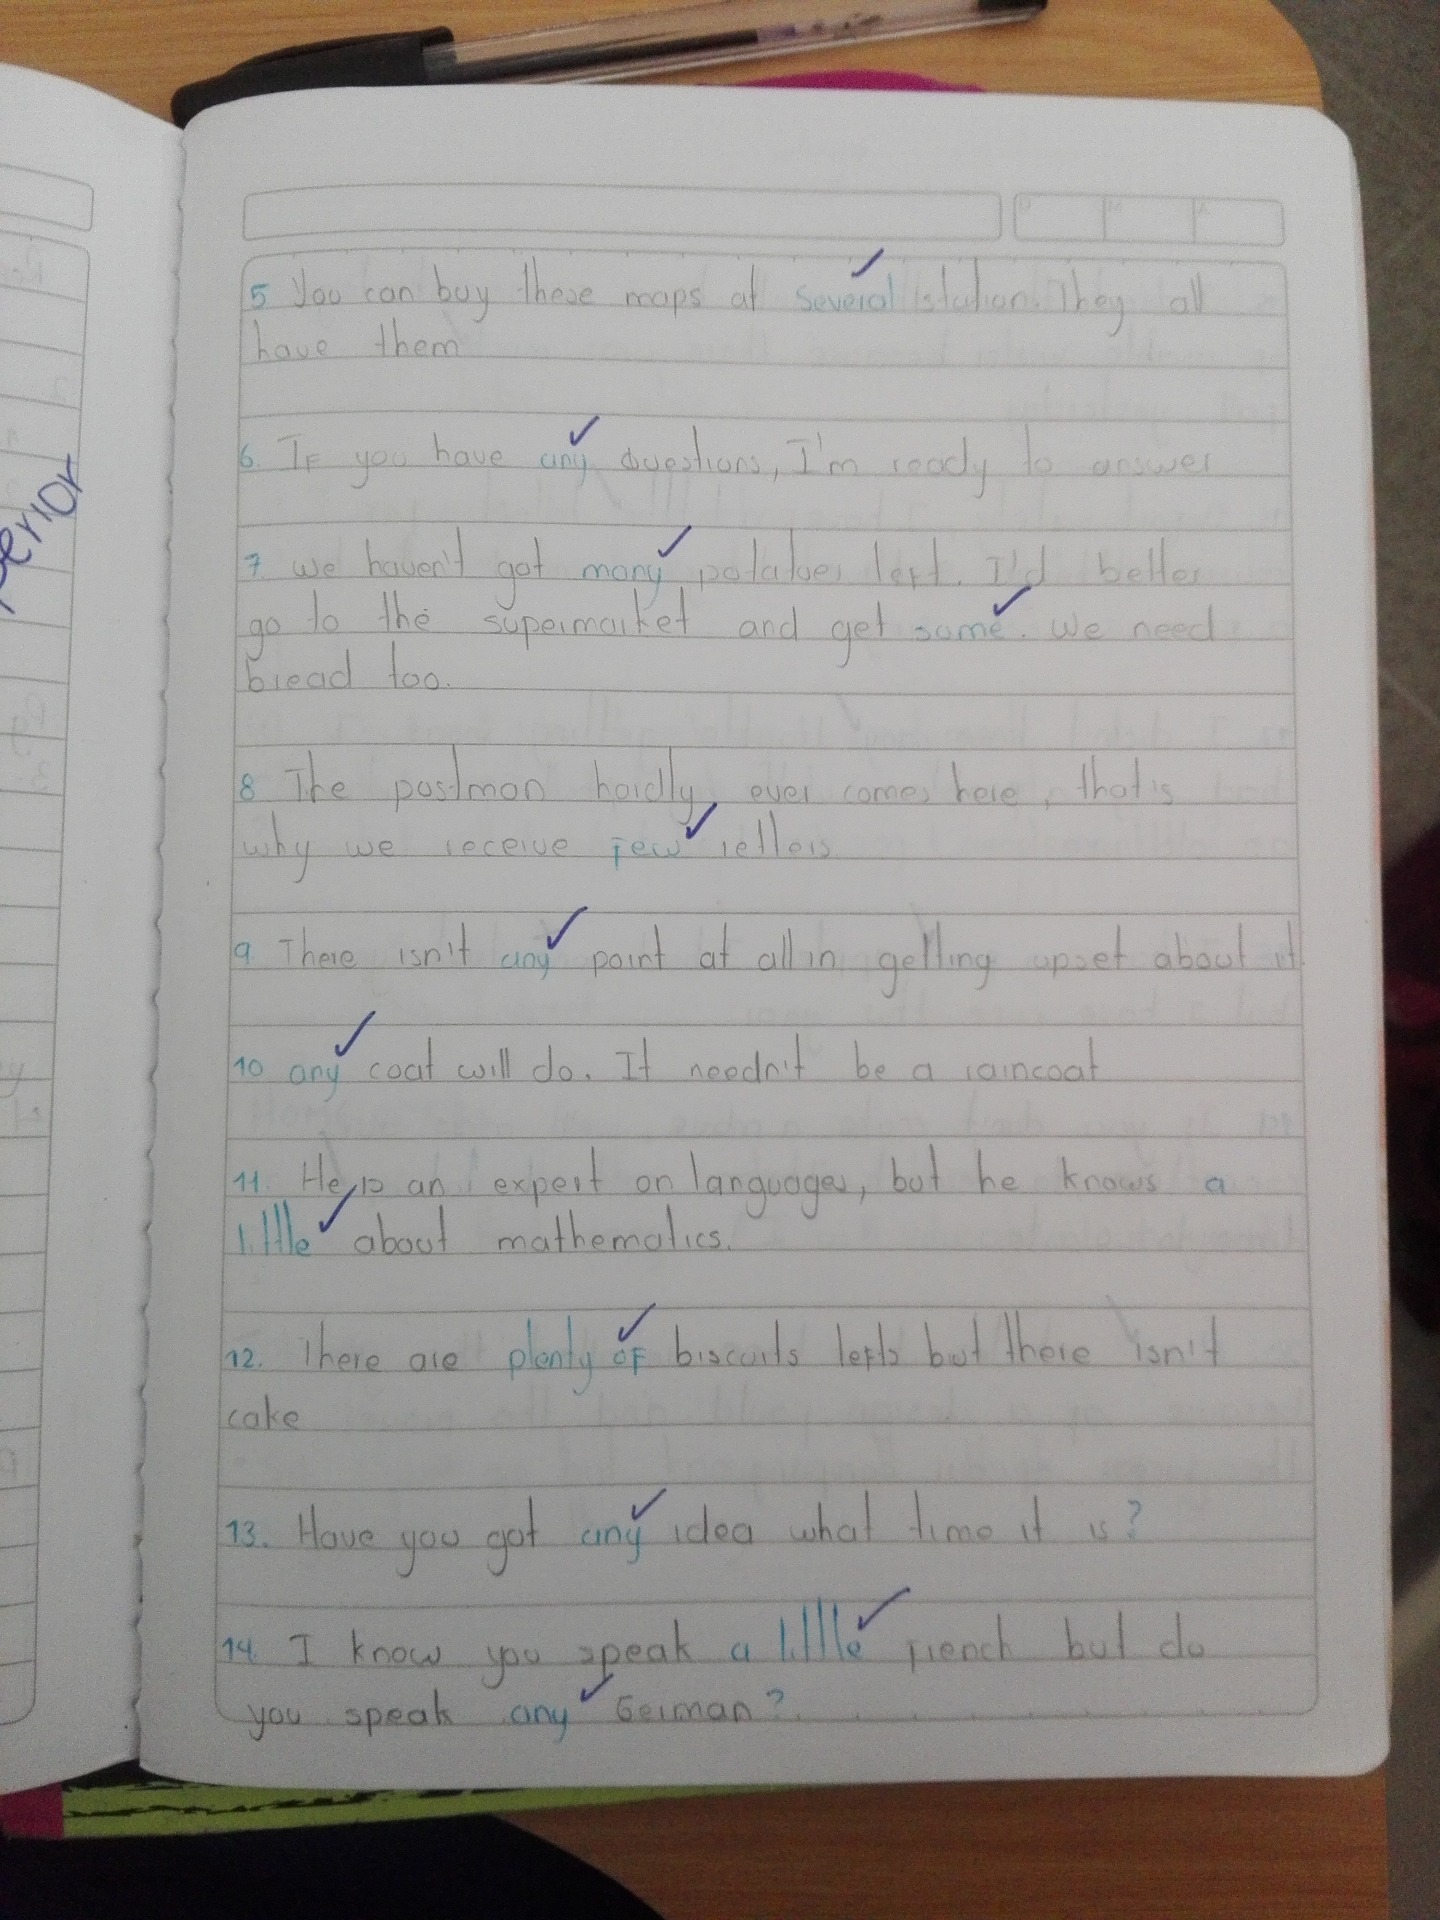 erior
5 You can buy these maps at several station. They all
have them
6. If you have any questions, I'm ready to answer
7. we haven't got many potatoes left. I'd better
go to the supermarket and get some. We need
bread too.
8 The postman hardly ever comes here, that's
why we receive few letters
9 There isn't any point at all in getting upset about it
10 any coat will do. It needn't be a raincoat
11. He is an expert on languages, but he knows a
little about mathematics.
12. There are plenty of biscuits left but there isn't
cake
13. Have you got any idea what time it is?
14. I know you speak a little French but do
you speak any German?